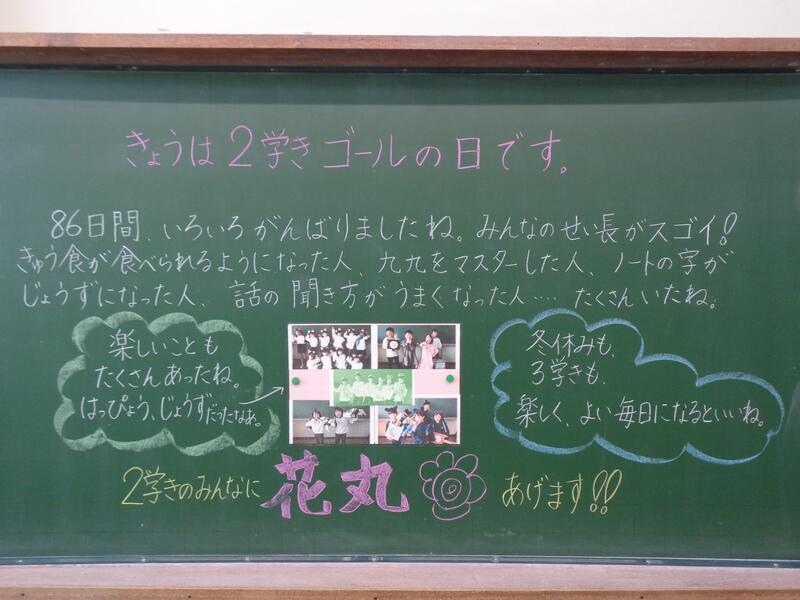 きょうは2学きゴールの日です。
86日間、いろいろがんばりましたね。みんなのせい長がスゴイ!
きゅう食が食べられるようになった人、九九をマスターした人、ノートの字が
じょうずになった人、話の聞き方がうまくなった人…‥ たくさんいたね。
楽しいことも
たくさんあったね。
はっぴょう、じょうずだったなあ。
冬休みも、
3学きも、
楽しく、よい毎日になるといいね。
2学きのみんなに花丸あげます!!